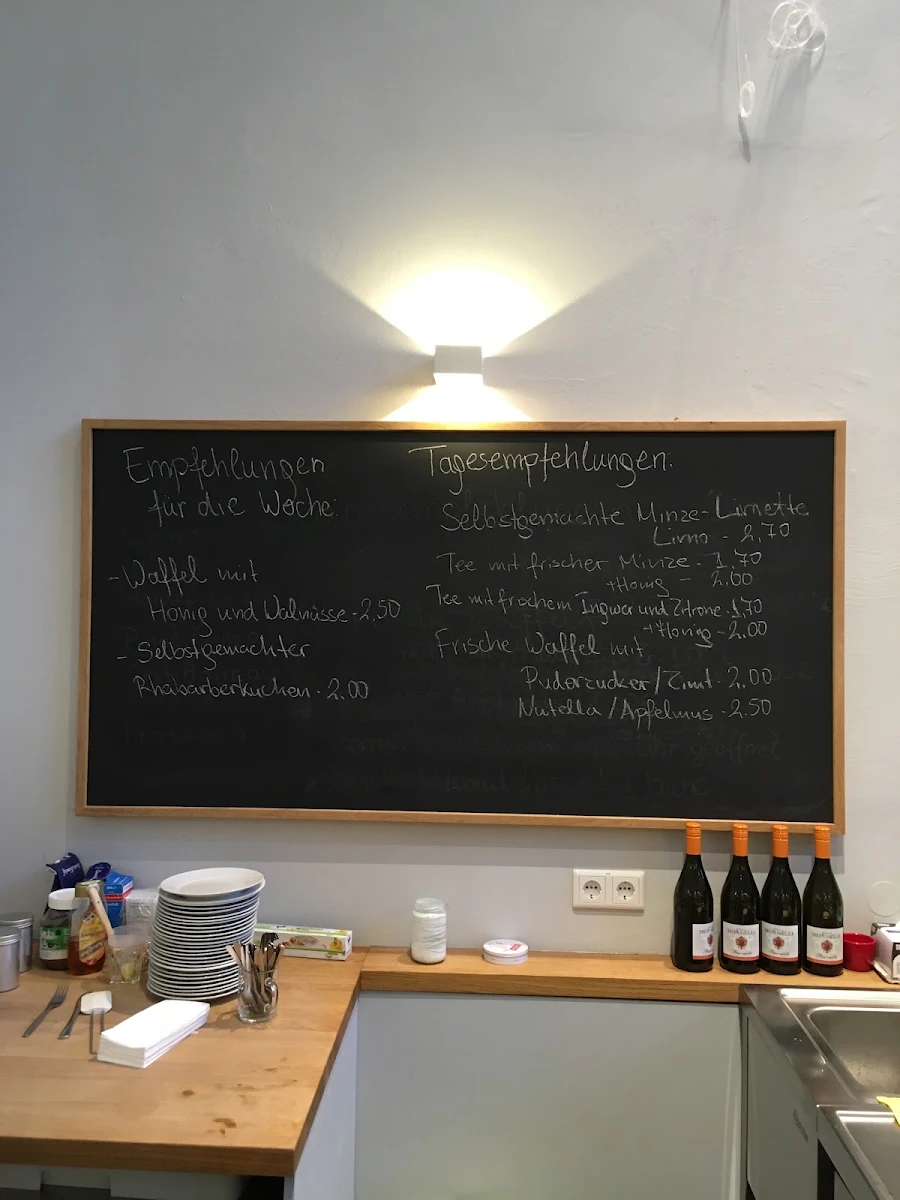 Empfehlungen
für die Woche:
- Waffel mit
Honig und Walnüsse - 2,50
- Selbstgemachter
Rhabarberkuchen - 2,00
Tagesempfehlungen:
Selbstgemachte Minze-Limette
Limo - 2,70
Tee mit frischer Minze - 1,70
+ Honig - 2,00
Tee mit frischem Ingwer und Zitrone - 1,70
+ Honig - 2,00
Frische Waffel mit
Puderzucker/Zimt - 2,00
Nutella/Apfelmus - 2,50